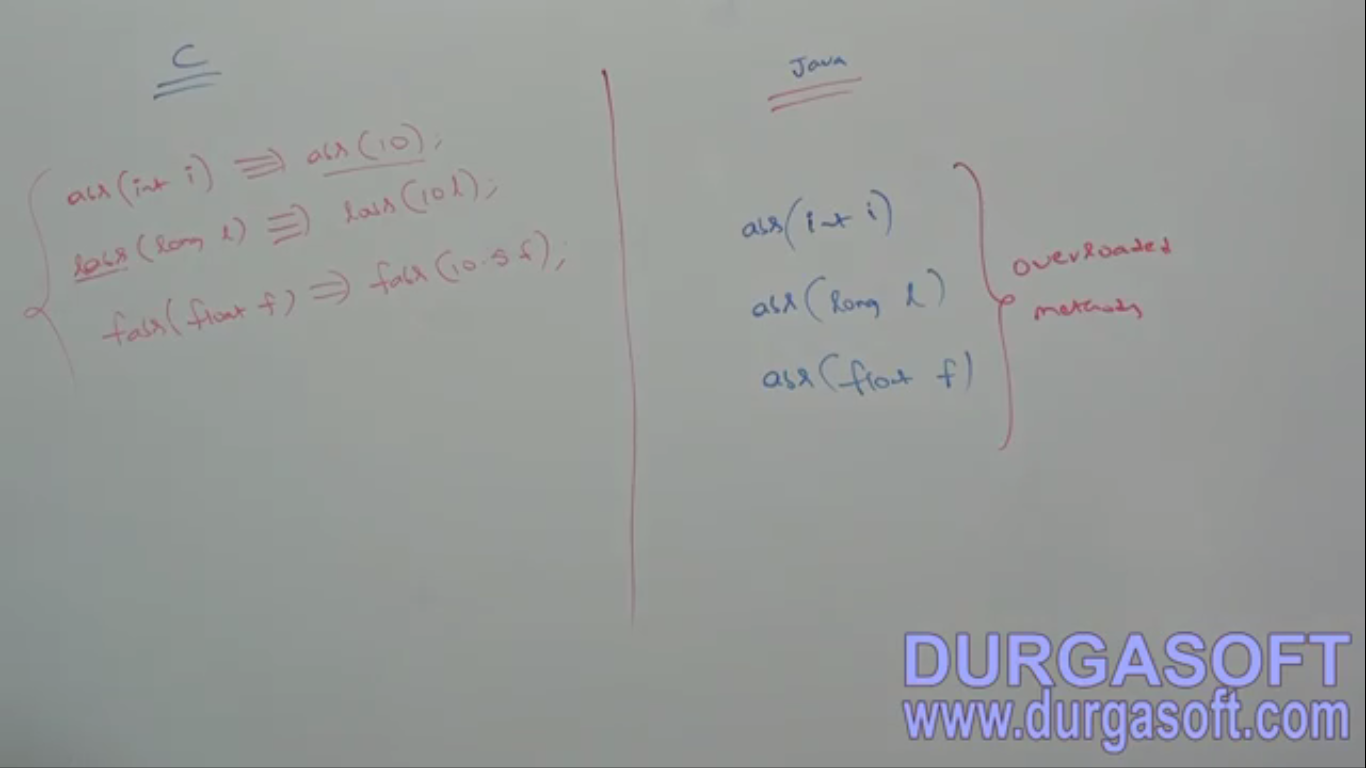 C
abs(int i) ⇒ abs(10);
labs(long l) ⇒ labs(10l);
fabs(float f) ⇒ fabs(10.5f);
Java
abs(int i)
abs(long l)
abs(float f)
overloaded
methods
DURGASOFT
www.durgasoft.com